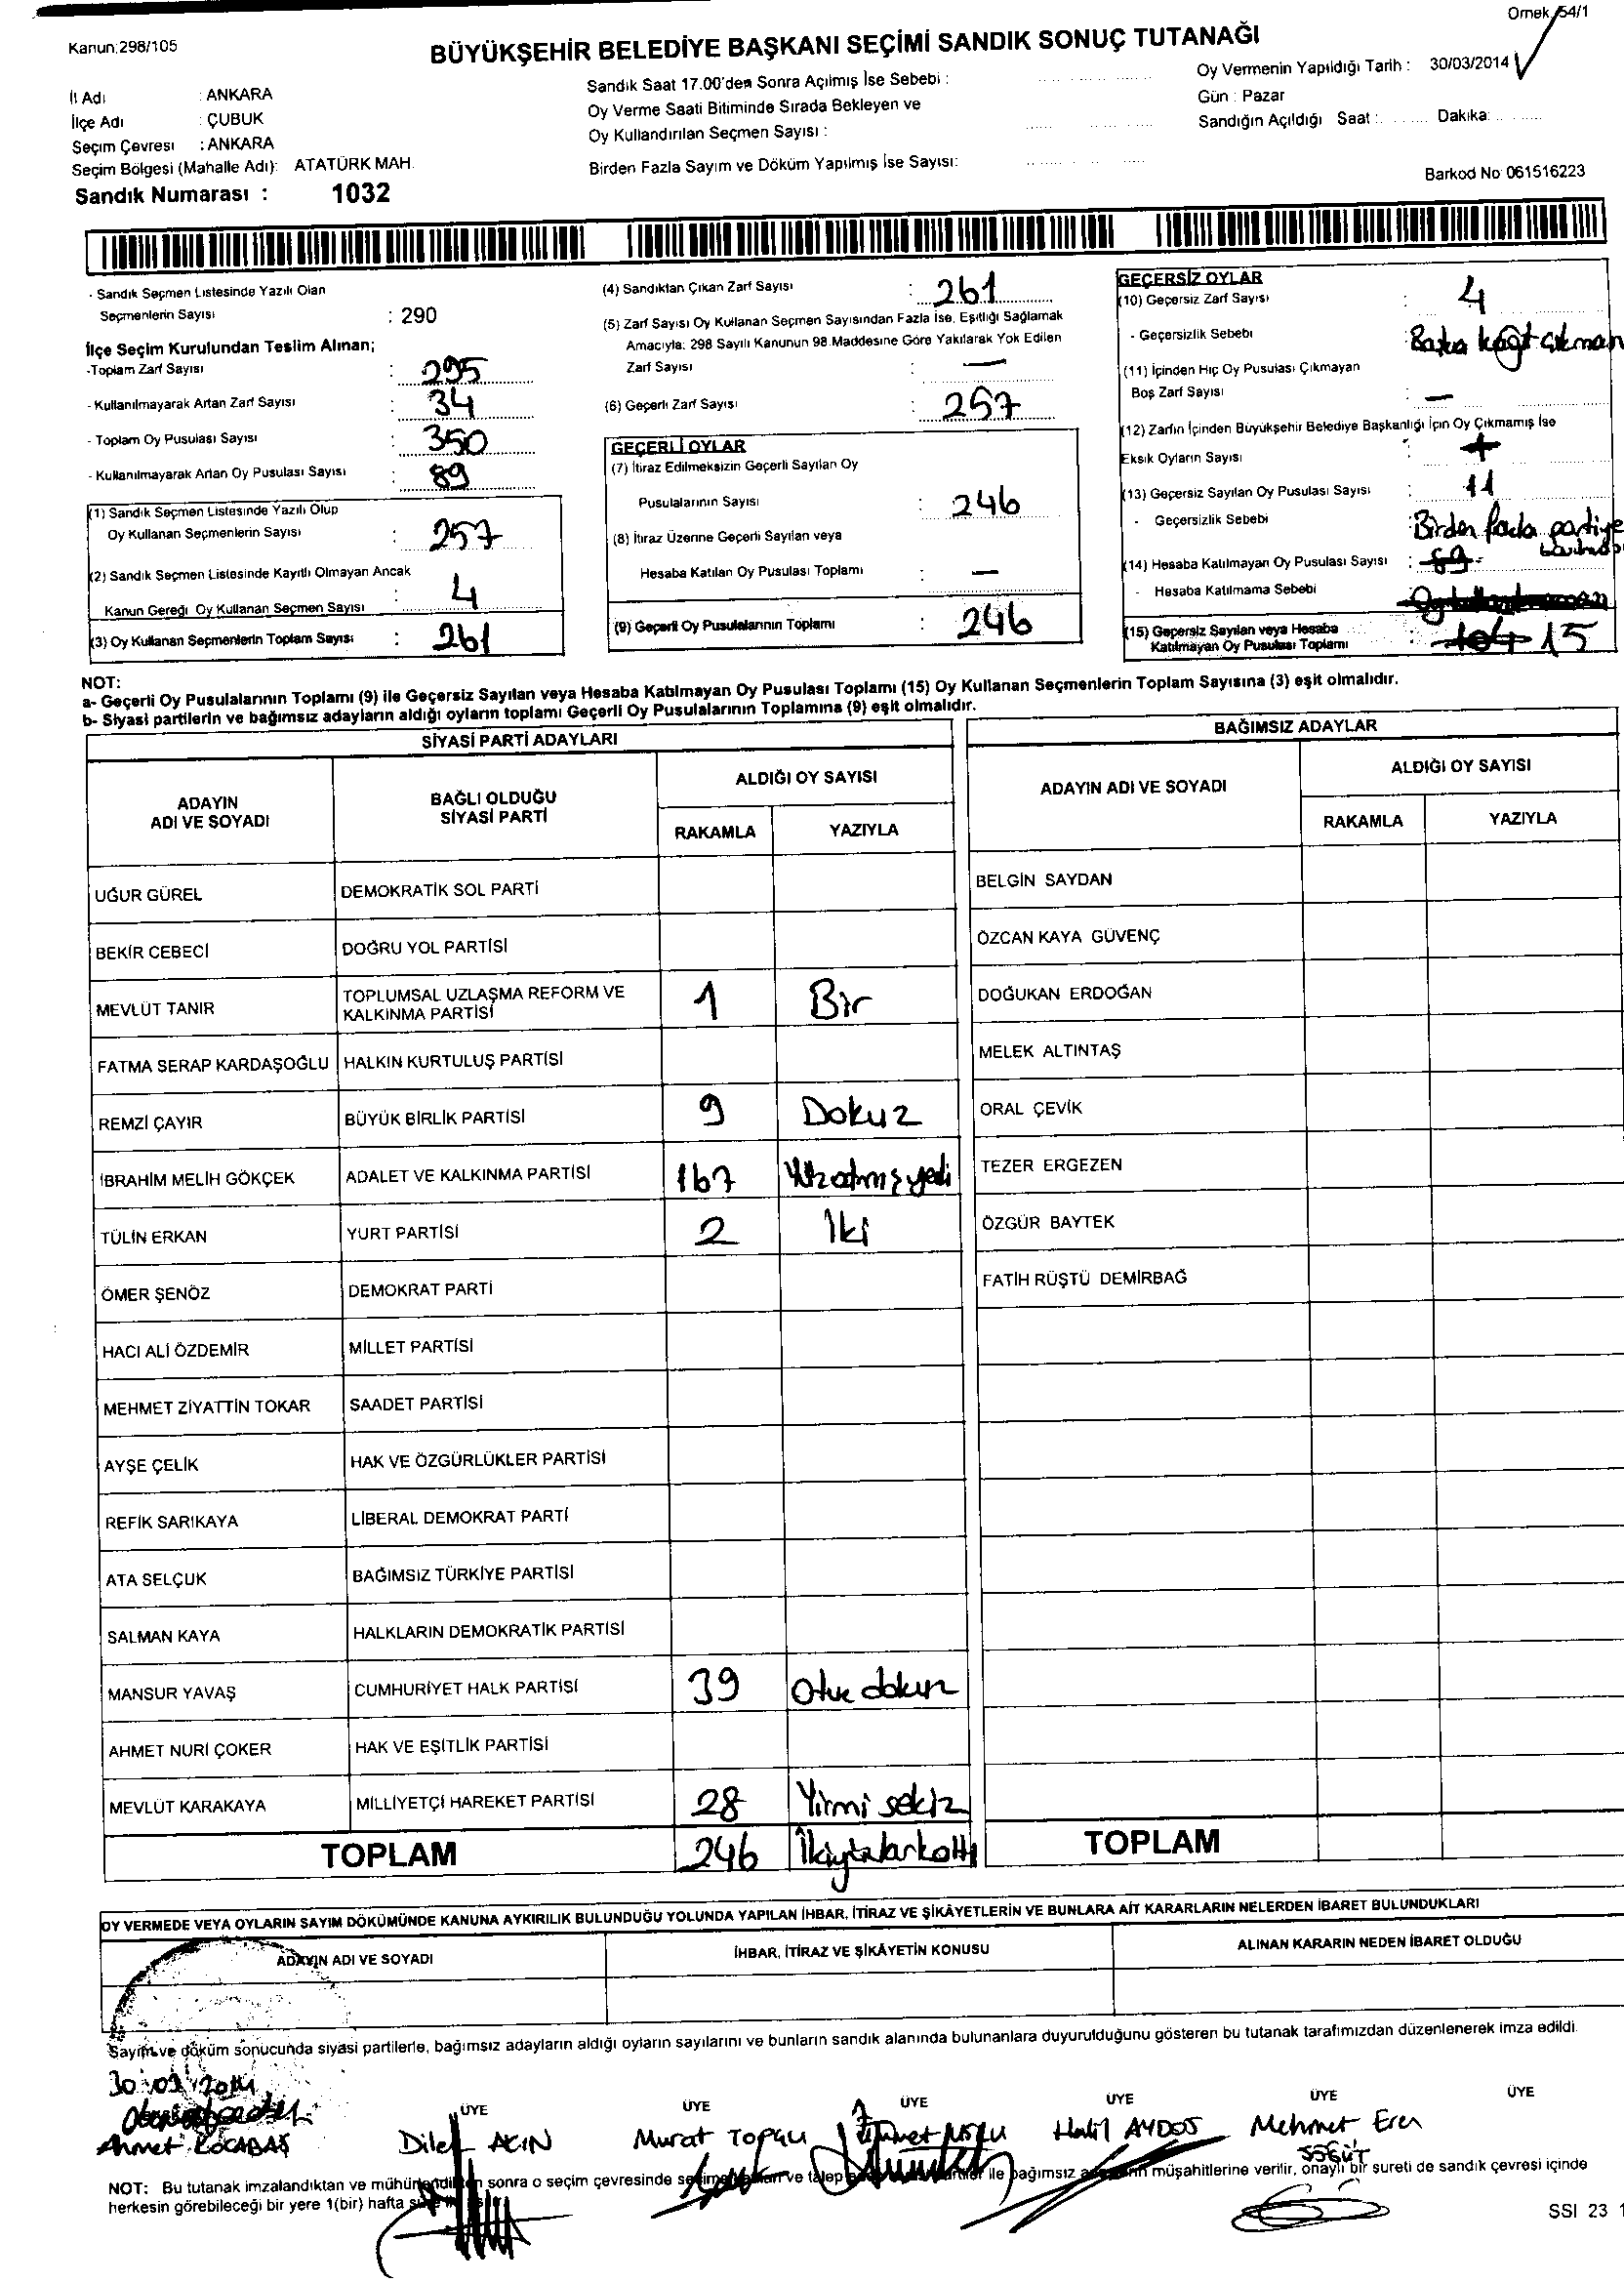 Örnek 54/1
Kanun:298/105
BÜYÜKŞEHİR BELEDİYE BAŞKANI SEÇİMİ SANDIK SONUÇ TUTANAĞI
İl Adı : ANKARA
İlçe Adı : ÇUBUK
Seçim Çevresi : ANKARA
Seçim Bölgesi (Mahalle Adı): ATATÜRK MAH.
Sandık Numarası : 1032
Sandık Saat 17.00'den Sonra Açılmış İse Sebebi :
Oy Verme Saati Bitiminde Sırada Bekleyen ve
Oy Kullandırılan Seçmen Sayısı :
Birden Fazla Sayım ve Döküm Yapılmış İse Sayısı:
Oy Vermenin Yapıldığı Tarih : 30/03/2014
Gün : Pazar
Sandığın Açıldığı Saat : Dakika:
Barkod No 061516223
- Sandık Seçmen Listesinde Yazılı Olan
Seçmenlerin Sayısı : 290
İlçe Seçim Kurulundan Teslim Alınan;
-Toplam Zarf Sayısı : 295
- Kullanılmayarak Artan Zarf Sayısı : 34
- Toplam Oy Pusulası Sayısı : 350
- Kullanılmayarak Artan Oy Pusulası Sayısı : 89
(1) Sandık Seçmen Listesinde Yazılı Olup
Oy Kullanan Seçmenlerin Sayısı : 257
(2) Sandık Seçmen Listesinde Kayıtlı Olmayan Ancak
Kanun Gereği Oy Kullanan Seçmen Sayısı : 4
(3) Oy Kullanan Seçmenlerin Toplam Sayısı : 261
(4) Sandıktan Çıkan Zarf Sayısı : 261
(5) Zarf Sayısı Oy Kullanan Seçmen Sayısından Fazla İse, Eşitliği Sağlamak
Amacıyla; 298 Sayılı Kanunun 98.Maddesine Göre Yakılarak Yok Edilen
Zarf Sayısı : —
(6) Geçerli Zarf Sayısı : 257
GEÇERLİ OYLAR
(7) İtiraz Edilmeksizin Geçerli Sayılan Oy
Pusulalarının Sayısı : 246
(8) İtiraz Üzerine Geçerli Sayılan veya
Hesaba Katılan Oy Pusulası Toplamı : —
(9) Geçerli Oy Pusulalarının Toplamı : 246
GEÇERSİZ OYLAR
(10) Geçersiz Zarf Sayısı : 4
- Geçersizlik Sebebi : Başka kağıt çıkman
(11) İçinden Hiç Oy Pusulası Çıkmayan
Boş Zarf Sayısı : —
(12) Zarfın İçinden Büyükşehir Belediye Başkanlığı İçin Oy Çıkmamış İse
Eksik Oyların Sayısı :
(13) Geçersiz Sayılan Oy Pusulası Sayısı : 11
- Geçersizlik Sebebi : Birden fazla partiye
(14) Hesaba Katılmayan Oy Pusulası Sayısı : 89
- Hesaba Katılmama Sebebi
(15) Geçersiz Sayılan veya Hesaba
Katılmayan Oy Pusulası Toplamı : 104 15
NOT:
a- Geçerli Oy Pusulalarının Toplamı (9) ile Geçersiz Sayılan veya Hesaba Katılmayan Oy Pusulası Toplamı (15) Oy Kullanan Seçmenlerin Toplam Sayısına (3) eşit olmalıdır.
b- Siyasi partilerin ve bağımsız adayların aldığı oyların toplamı Geçerli Oy Pusulalarının Toplamına (9) eşit olmalıdır.
SİYASİ PARTİ ADAYLARI
ADAYIN ADI VE SOYADI BAĞLI OLDUĞU SİYASİ PARTİ ALDIĞI OY SAYISI
RAKAMLA YAZIYLA
UĞUR GÜREL DEMOKRATİK SOL PARTİ
BEKİR CEBECİ DOĞRU YOL PARTİSİ
MEVLÜT TANIR TOPLUMSAL UZLAŞMA REFORM VE KALKINMA PARTİSİ 1 Bir
FATMA SERAP KARDAŞOĞLU HALKIN KURTULUŞ PARTİSİ
REMZİ ÇAYIR BÜYÜK BİRLİK PARTİSİ 9 Dokuz
İBRAHİM MELİH GÖKÇEK ADALET VE KALKINMA PARTİSİ 167 Yüzatmışyedi
TÜLİN ERKAN YURT PARTİSİ 2 İki
ÖMER ŞENÖZ DEMOKRAT PARTİ
HACI ALİ ÖZDEMİR MİLLET PARTİSİ
MEHMET ZİYATTİN TOKAR SAADET PARTİSİ
AYŞE ÇELİK HAK VE ÖZGÜRLÜKLER PARTİSİ
REFİK SARIKAYA LİBERAL DEMOKRAT PARTİ
ATA SELÇUK BAĞIMSIZ TÜRKİYE PARTİSİ
SALMAN KAYA HALKLARIN DEMOKRATİK PARTİSİ
MANSUR YAVAŞ CUMHURİYET HALK PARTİSİ 39 Otuz dokuz
AHMET NURİ ÇOKER HAK VE EŞİTLİK PARTİSİ
MEVLÜT KARAKAYA MİLLİYETÇİ HAREKET PARTİSİ 28 Yirmi sekiz
TOPLAM 246 İkiyüzkırkaltı
BAĞIMSIZ ADAYLAR
ADAYIN ADI VE SOYADI ALDIĞI OY SAYISI
RAKAMLA YAZIYLA
BELGİN SAYDAN
ÖZCAN KAYA GÜVENÇ
DOĞUKAN ERDOĞAN
MELEK ALTINTAŞ
ORAL ÇEVİK
TEZER ERGEZEN
ÖZGÜR BAYTEK
FATİH RÜŞTÜ DEMİRBAĞ
TOPLAM
OY VERMEDE VEYA OYLARIN SAYIM DÖKÜMÜNDE KANUNA AYKIRILIK BULUNDUĞU YOLUNDA YAPILAN İHBAR, İTİRAZ VE ŞİKÂYETLERİN VE BUNLARA AİT KARARLARIN NELERDEN İBARET BULUNDUKLARI
ADAYIN ADI VE SOYADI İHBAR, İTİRAZ VE ŞİKÂYETİN KONUSU ALINAN KARARIN NEDEN İBARET OLDUĞU
Sayım ve döküm sonucunda siyasi partilerle, bağımsız adayların aldığı oyların sayılarını ve bunların sandık alanında bulunanlara duyurulduğunu gösteren bu tutanak tarafımızdan düzenlenerek imza edildi.
30.03.2014
ÜYE ÜYE ÜYE ÜYE ÜYE ÜYE
Ahmet KOCABAŞ Dilek AKIN Murat TOPÇU Halil AYDOS Mehmet Eren
SÖĞÜT
NOT: Bu tutanak imzalandıktan ve mühürlendikten sonra o seçim çevresinde ve talep ile bağımsız müşahitlerine verilir, onaylı bir sureti de sandık çevresi içinde
herkesin görebileceği bir yere 1(bir) hafta
SSI 23 1